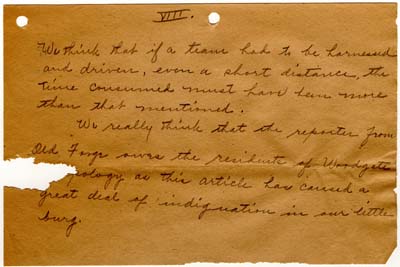 VIII.
We think that if a team had to be harnessed
and driven, even a short distance, the
time consumed must have been more
than that mentioned.
We really think that the reporter from
Old Forge owes the residents of Woodgate
pology as this article has caused a
great deal of indignation in our little
burg.